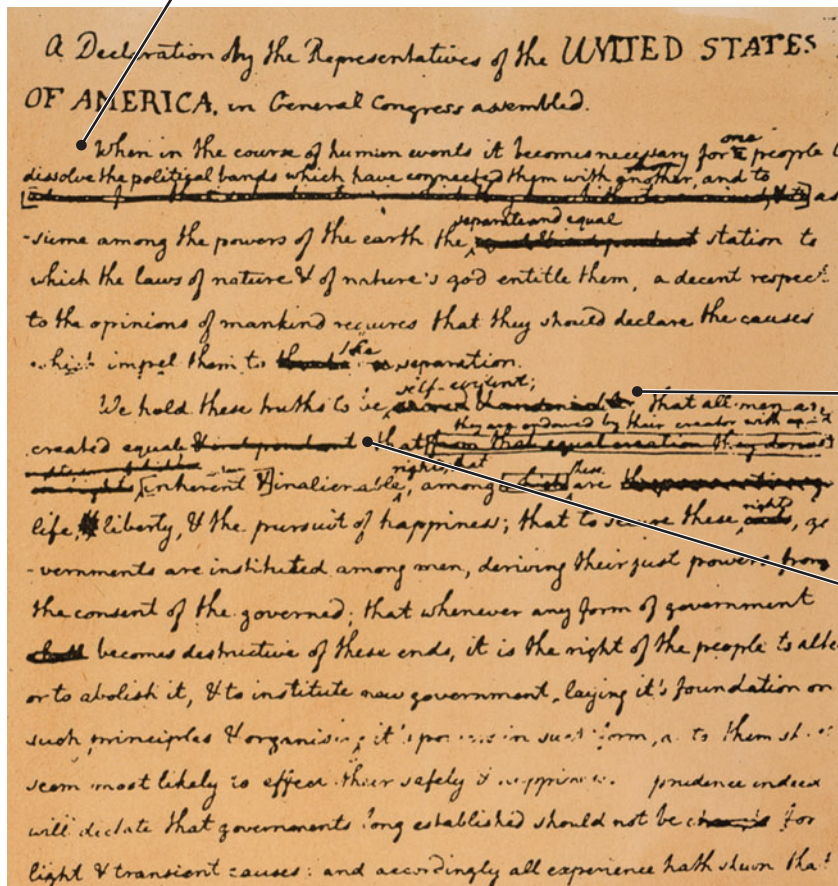 A Declaration by the Representatives of the UNITED STATES
OF AMERICA, in General Congress assembled.
one
When in the course of human events it becomes necessary for people
dissolve the political bands which have connected them with another, and to
as
separate and equal
-sume among the powers of the earth the station to
which the laws of nature & of nature's god entitle them, a decent respect
to the opinions of mankind requires that they should declare the causes
which impel them to the separation.
self-evident;
We hold these truths to be that all men are
they are endowed by their creator with
created equal & independant that from that equal creation they
rights, that these
inherent & inalienable, among which are
life, liberty, & the pursuit of happiness; that to secure these rights, go
-vernments are instituted among men, deriving their just powers from
the consent of the governed; that whenever any form of government
shall becomes destructive of these ends, it is the right of the people to alter
or to abolish it, & to institute new government, laying it's foundation on
such principles & organising it's powers in such form, as to them shall
seem most likely to effect their safety & happiness. prudence indeed
will dictate that governments long established should not be for
light & transient causes: and accordingly all experience hath shewn that